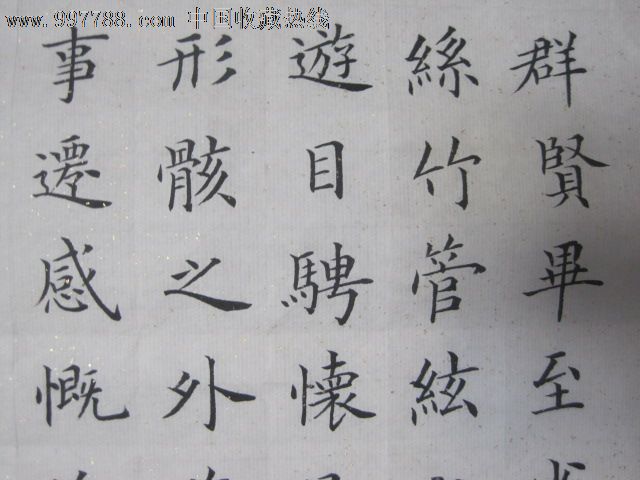 www.997788.com 中国收藏热线
群賢畢至
絲竹管絃
遊目騁懷
形骸之外
事遷感慨